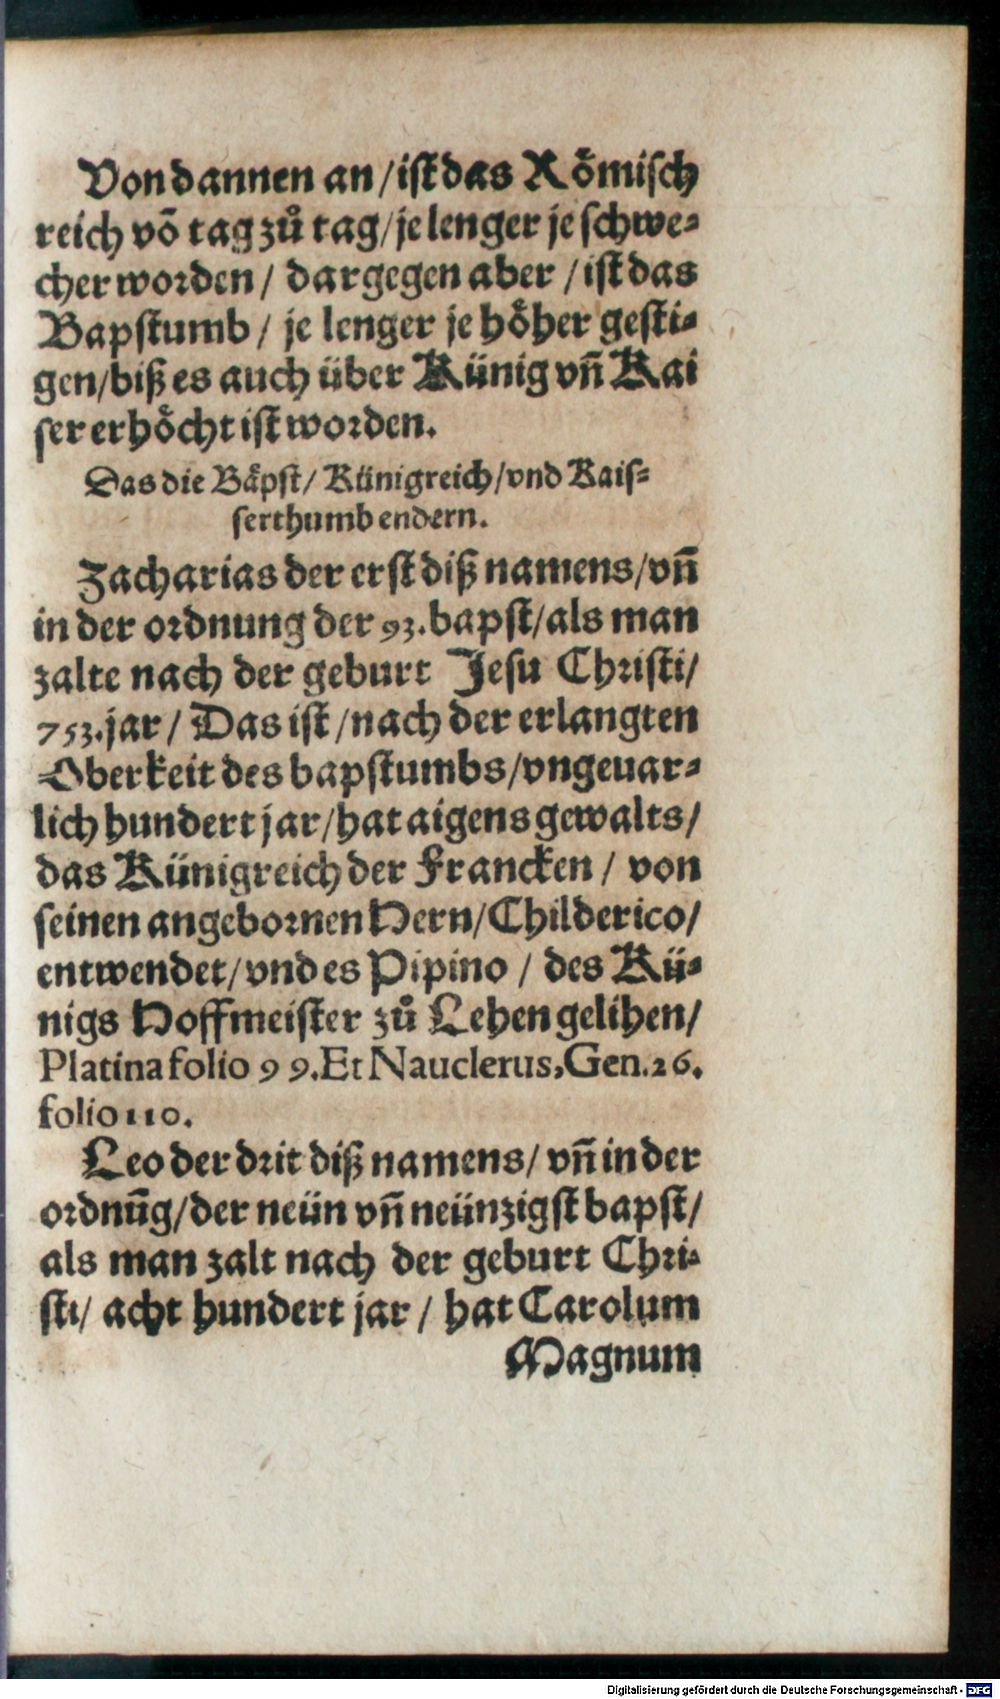 Von dannen an / ist das Roͤmisch
reich võ tag zuͦ tag / je lenger je schwe⸗
cher worden / dargegen aber / ist das
Bapstumb / je lenger je hoͤher gesti⸗
gen / biß es auch über Künig vñ Kai
ser erhoͤcht ist worden.
Das die Baͤpst / Künigreich / vnd Kais⸗
serthumb endern.
Zacharias der erst diß namens / vñ
in der ordnung der 93. bapst / als man
zalte nach der geburt Jesu Christi /
753. jar / Das ist / nach der erlangten
Oberkeit des bapstumbs / vngeuar⸗
lich hundert jar / hat aigens gewalts /
das Künigreich der Francken / von
seinen angebornen Hern / Childerico /
entwendet / vnd es Pipino / des Kü⸗
nigs Hoffmeister zuͦ Lehen gelihen /
Platina folio 99. Et Nauclerus, Gen. 26.
folio 110.
Leo der drit diß namens / vñ in der
ordnũg / der neün vñ neünzigst bapst /
als man zalt nach der geburt Chri⸗
sti / acht hundert jar / hat Carolum
Magnum
Digitalisierung gefördert durch die Deutsche Forschungsgemeinschaft - DFG